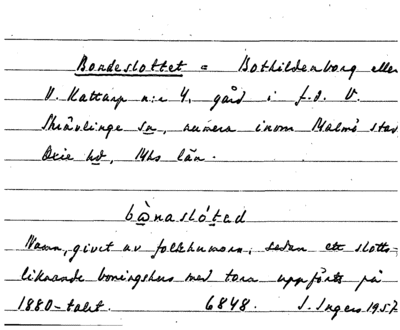 Bondeslottet = Bothildenborg eller
V. Kattarp n:r 4, gård i f.d. V.
Skrävlinge sn, numera inom Malmö stad,
Oxie hd, Mhs län.
bò̤nasló̤tad
Namn, givet av folkhumorn, sedan ett slotts-
liknande boningshus med torn uppförts på
1880-talet. 6848. I. Ingers 1957